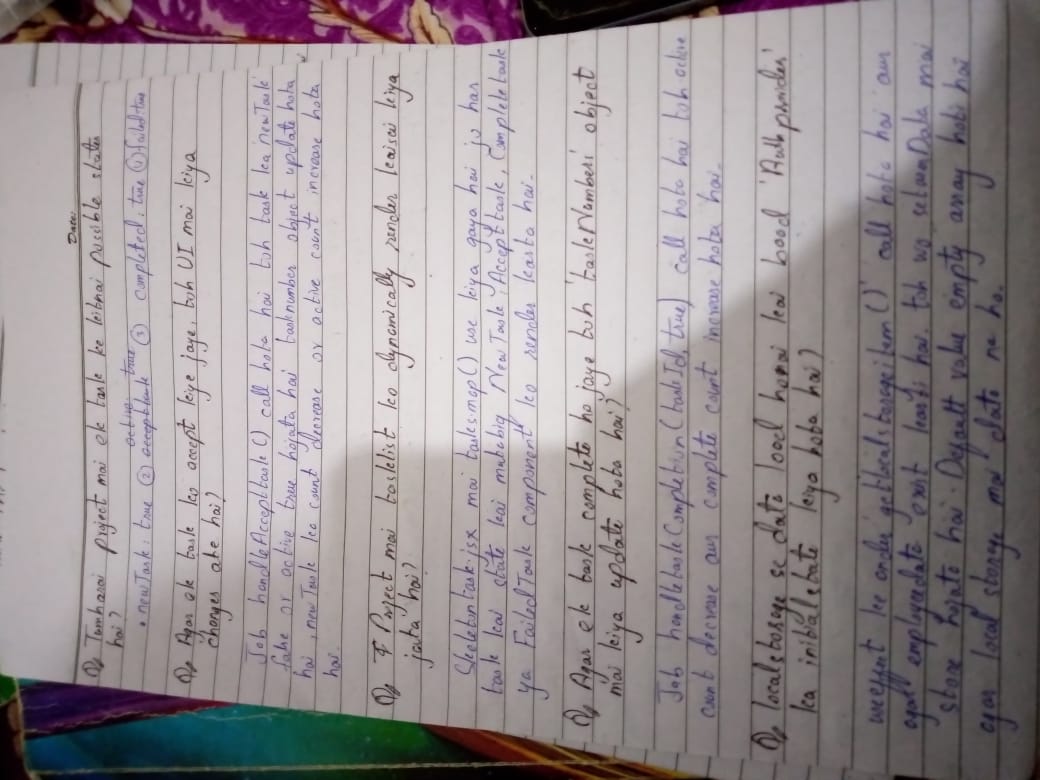 Date:
Q Tumharai project mai ek task ke kitnai possible states
hai?
• newTask: true ② accepttask active: true ③ completed: true ④ failed: true
Q Agar ek task ko accept kiya jaye, toh UI mai kiya
changes ate hai?
Jab handleAccepttask() call hota hai toh task ka newTask
false or active true hojata hai tasknumber object update hota
hai, newTask ko count decrease or active count increase hota
hai.
Q Project mai tasklist ko dynamically render kaisai kiya
jata hai?
Skeletontask.jsx mai tasks.map() use kiya gaya hai jo har
task kai state kai mutabiq NewTask, Accepttask, Completetask
ya FailedTask component ko render karta hai.
Q Agar ek task complete ho jaye toh 'taskNumbers' object
mai kiya update hota hai?
Jab handletaskCompletion(taskId, true) call hota hai toh active
count decrease aur complete count increase hota hai.
Q localstorage se data load honai kai baad 'Authprovider'
ka initial state kiya hota hai?
useEffect ke andar getlocalstorageitem() call hota hai aur
agar employeedata exist karti hai, toh wo setuserData mai
store hojata hai. Default value empty array hoti hai
agar local storage mai data na ho.